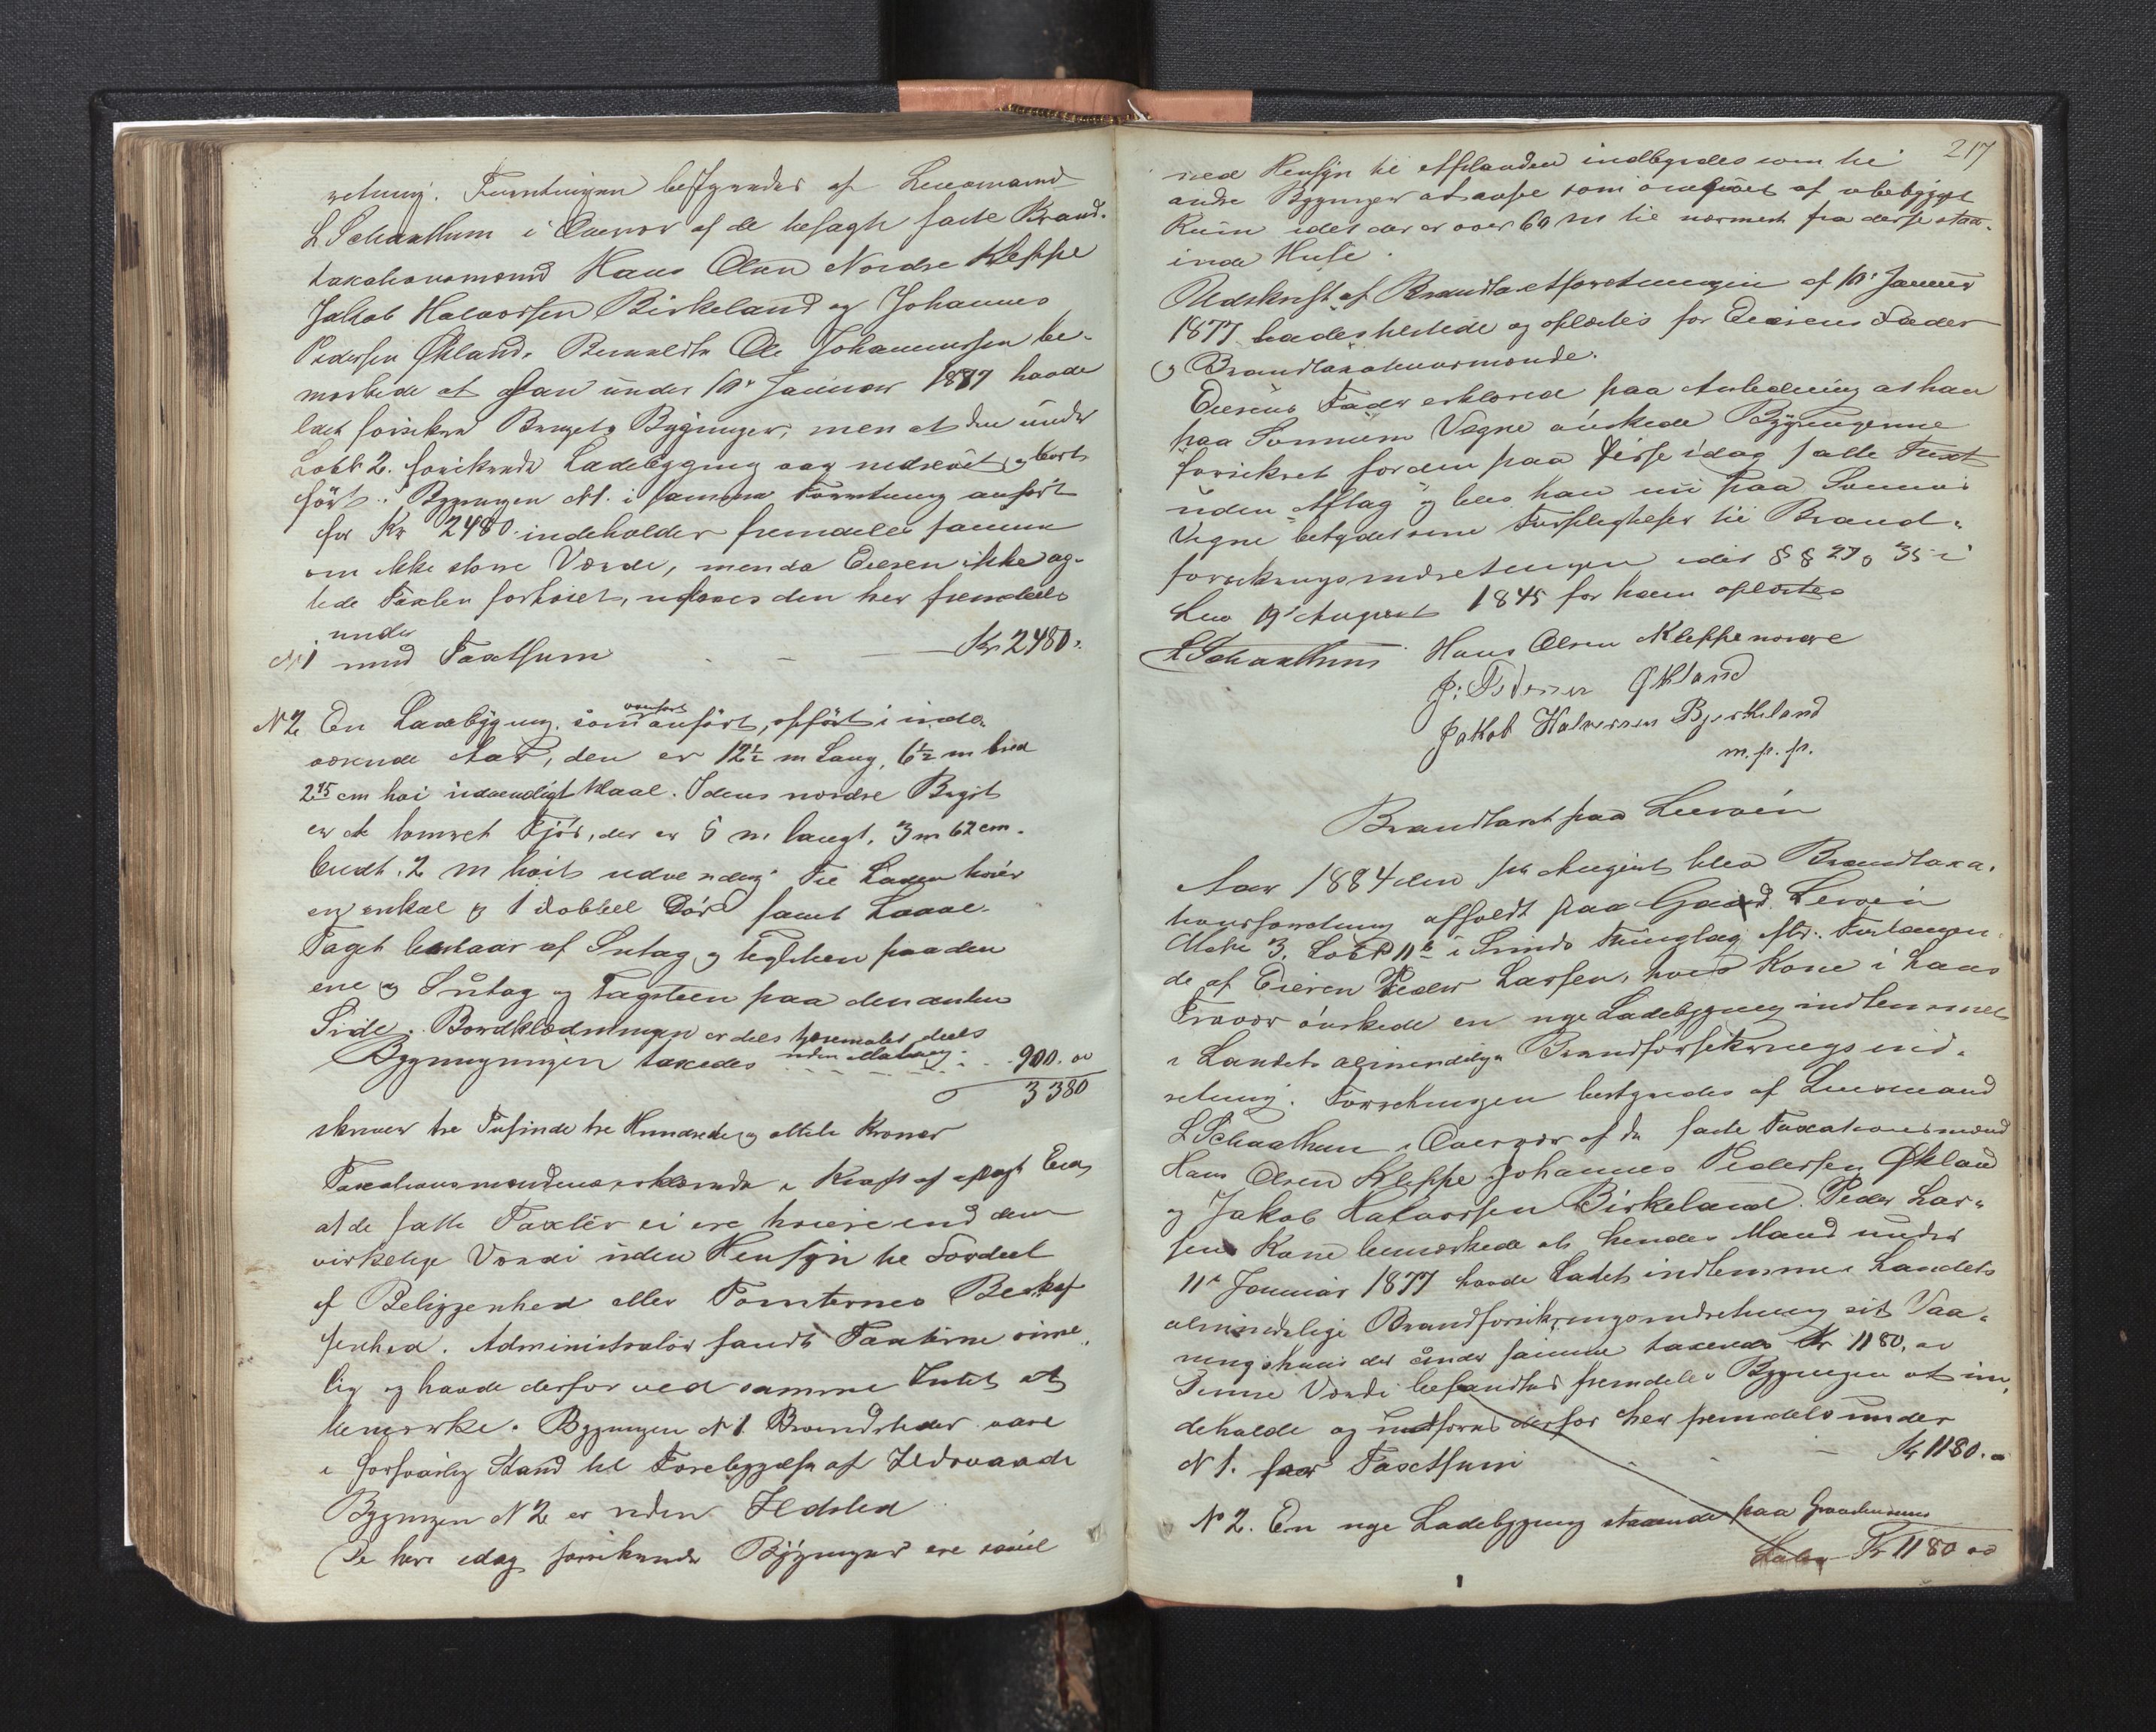 retning. Forretningen bestyredes af Lensmand
L Schaathun i Overvær af de besagte faste Brand-
taxationsmænd Hans Olsen Nordre Kleppe
Jakob Halvorsen Birkeland og Johannes
Pedersen Økland. Ole Johannessen be-
mærkede at han under 10de Januar 1877 havde
ladet forsikre Brugets Bygninger, men at den under
Løbb 2. forsikrede Ladebygning var nedrevet og bort
ført. Bygningen N1. i samme Forretning anført
for Kr 2480 indeholder fremdeles samme
om ikke større Værdi, men da Eieren ikke ag-
tede Taxten forhøiet, udføres den her fremdeles
under
N 1 med Taxtsum — — Kr 2480.
N 2 En Ladebygning, som anført, opført i inde-
værende Aar, den er 12½ m Lang, 6½ m bred
2 75 cm høi udvendigt Maal. I dens nordre
er et tømret Fjøs, der er 5 m langt, 3 m 62 cm.
bredt, 2 m høit udvendig. Til Laden hører
en enkel og 1 dobbel Dør samt Laave.
Taget bestaar af Sutag og Teglsten paa den
ene og Sutag og Tagsteen paa den anden
Side. Bordklædningen er dels tjæremalet deels
Bygningen taxedes uden Maling . . 900.00
3380
skriver tre Tusinde tre Hundrede og otteti Kroner
Taxationsmændene erklærede i Kraft af aflagt Eed,
at de satte Taxter ei ere høiere end den
virkelige Værdi uden Hensyn til Fordeel
af Beliggenhed eller Tomternes Beskaf
fenhed. Administrator fandt Taxterne rime-
lig og havde derfor ved samme Intet at
bemærke. Bygningen N 1 Brandsteder vare
i forsvarlig Stand til Forebyggelse af Ildsvaade
Bygningen N 2 er uden Ildsted
De her idag forsikrede Bygninger ere saavel
217
med Hensyn til Afstanden indbyrdes som til
andre Bygninger at ansee som omgivet af ubebygget
Rum idet der er over 60 m til nærmest fra disse staa-
ende Huse.
Udskrift af Brandtaxtforretningen af 10de Januar
1877 havdes tilstede og oplæstes for Eierens Fader
og Brandtaxationsmænde.
Eierens Fader erklærede paa Anledning at han
paa Sønnens Vegne ønskede Bygningerne
forsikret for den paa disse idag satte Taxt
uden Aftag og blev han nu paa Sønnens
Vegne betydet sine Forpligtelser til Brand-
forsikringsindretningen idet §§ 27 og 35 i
Lov 19de August 1845 for ham oplæstes
L Schaathun Hans Olsen Kleppe nordre
J: Pedersen Økland
Jakob Halvorsen Bjerkeland
m. p. p.
Brandtaxt paa Lervein
Aar 1884 den August blev Brandtaxa-
tionsforretning afholdt paa Gaard Lervein
Matr 3, Løbb 11 b i Thinglag efter Forlangen-
de af Eieren Peder Larsen, hvis Kone i hans
Fravær ønskede en nye Ladebygning indlemmet
i Landets almindelige Brandforsikringsind-
retning. Forretningen bestyredes af Lensmand
L Schaathun i Overvær af de faste Taxationsmænd
Hans Olsen Kleppe Johannes Pedersen Økland
og Jakob Halvorsen Birkeland. Peder Lar-
sens Kone bemærkede at hendes Mand under
11te Januar 1877 havde ladet indlemme i Landets
almindelige Brandforsikringsindretning sit Vaa-
ningshuus der under samme taxeredes Kr 1180,00
Denne Værdi befandtes fremdeles Bygningen at in-
deholde og indføres derfor her fremdeles under
N 1. for Taxtsum — Kr 1180.00
N 2. En nye Ladebygning staaende paa Graasteens
Kr 1180 00